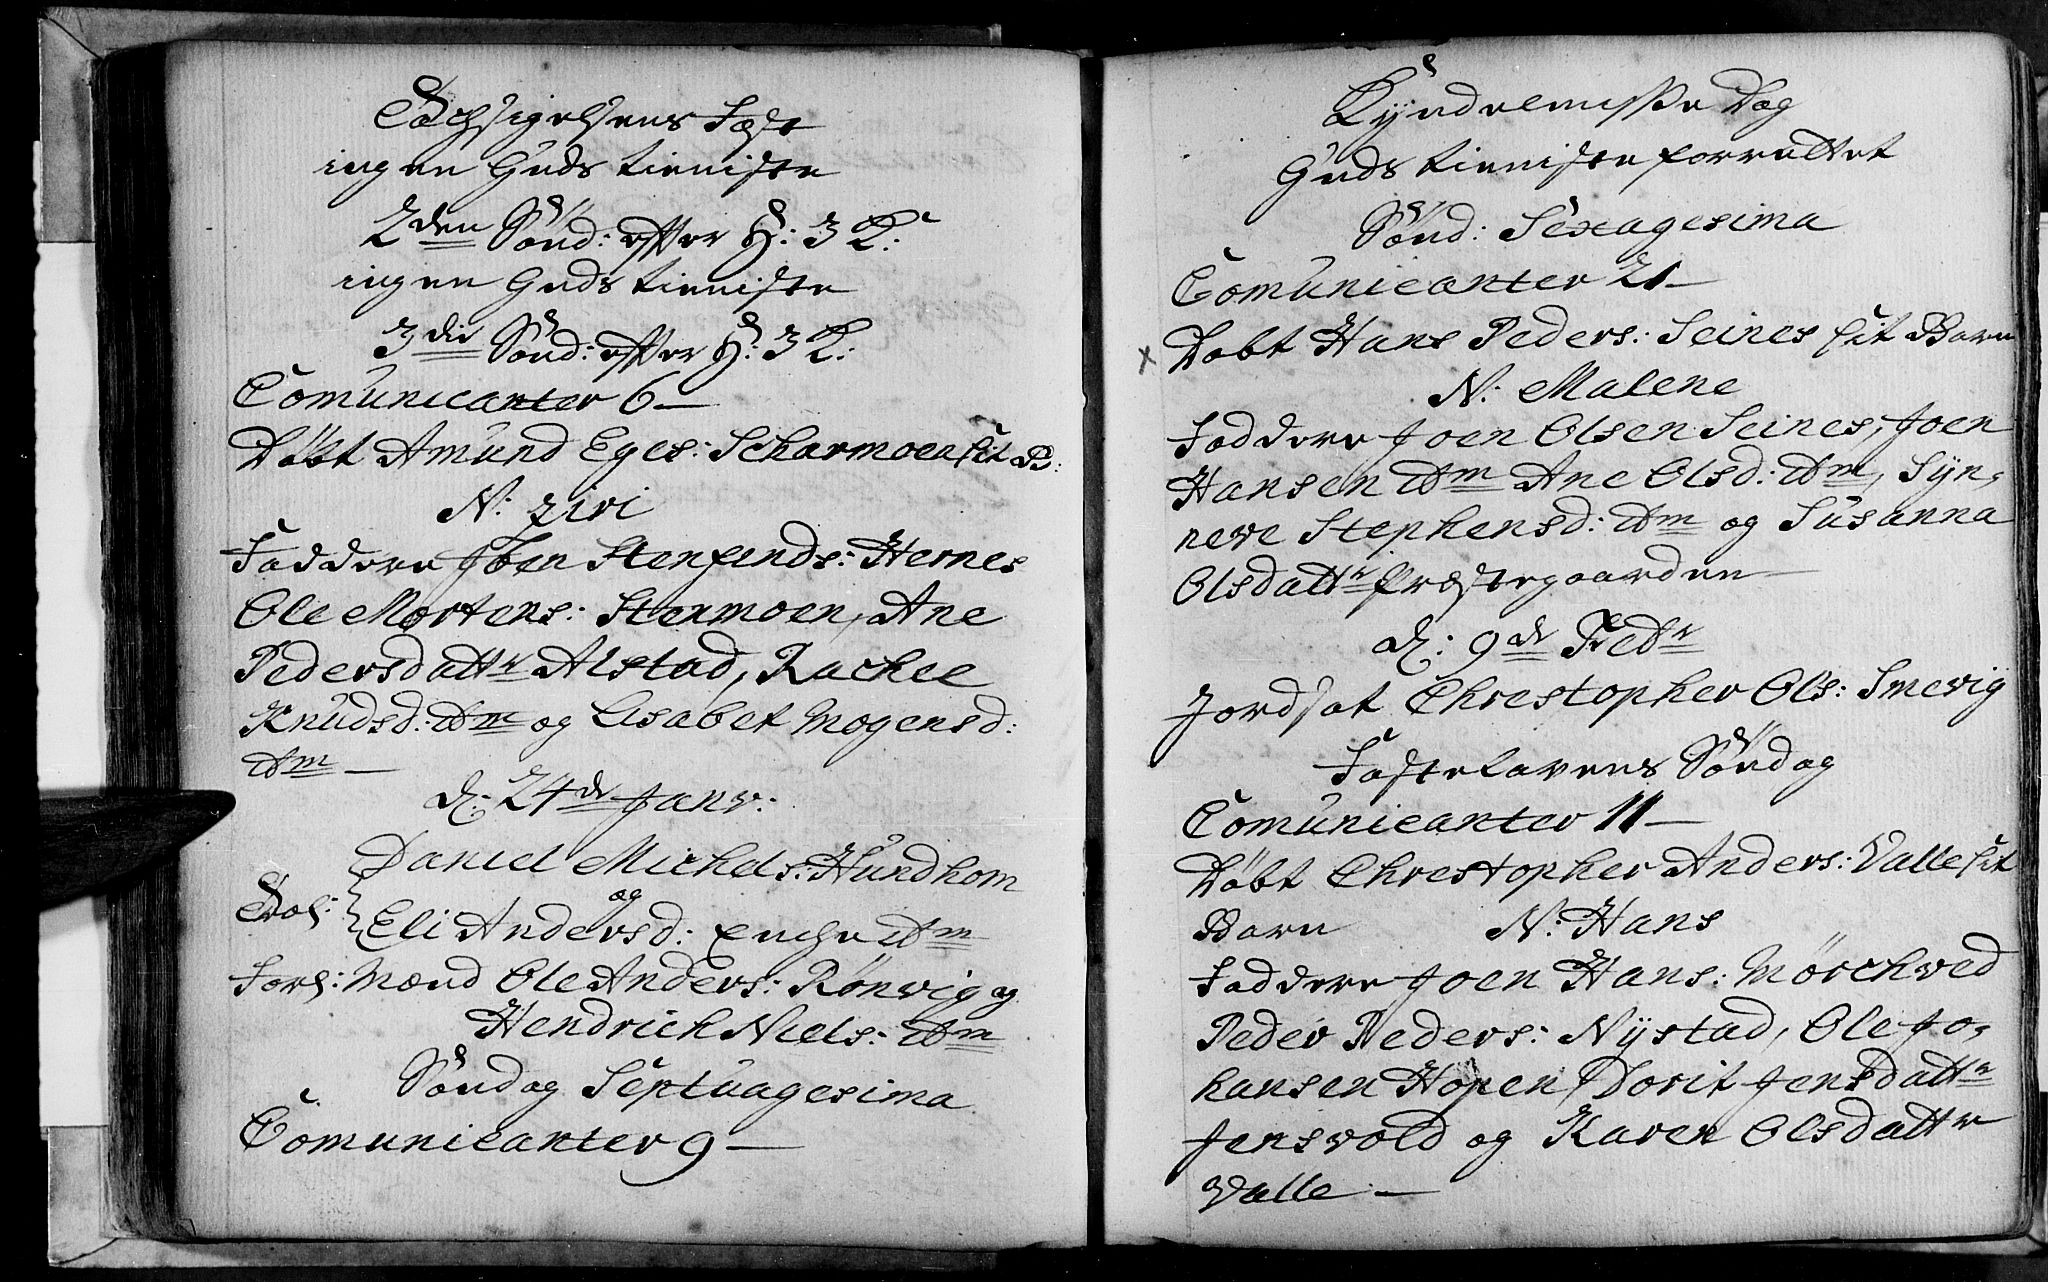 Tachsigelsens Fæst
ingen Guds tieniste
2den Sönd: effter H: 3 K:
ingen Guds tieniste
3die Sönd: effter H: 3 K:
Comunicanter 6 —
Döbt Amund Eges: Scharmoen sit B:
N: ziri
Faddere Joen Stenfinds: Hernes
Ole Mortens: Stormoen, Ane
Pedersdattr Alstad, Rachel
Knudsd: Dm og Lisabet Mogensd:
Dm —
d: 24de Janv:
Daniel Michels: Hundhom
Trol: og
Eli Andersd: Enche Dm
Forl: Mænd Ole Anders: Rönvig og
Hendrich Niels: Dm
Söndag Septuagesima
Comunicanter 9 —
Kyndelmisse Dag
Guds tieniste forrettet
Sönd: Sexagesima
Comunicanter 21 —
x Döbt Hans Peders: Seines sit Barn
N: Malene
Faddere Joen Olsen Seines, Joen
Hansen Dm Ane Olsd: Dm, Syn,
neve Stephensd: Dm og Susanna
Olsdattr Præstegaarden —
d: 9de Febr
Jordsat Chrestopher Ols: Smevig
Fastelavens Söndag
Comunicanter 11 —
Döbt Chrestopher Anders: Valle sit
Barn N: Hans
Faddere Joen Hans: Mörchved
Peder Peders: Nystad, Ole Jo,
hansen Hopen, Dorit Jensdattr
Jensvold og Karen Olsdattr
Valle: —